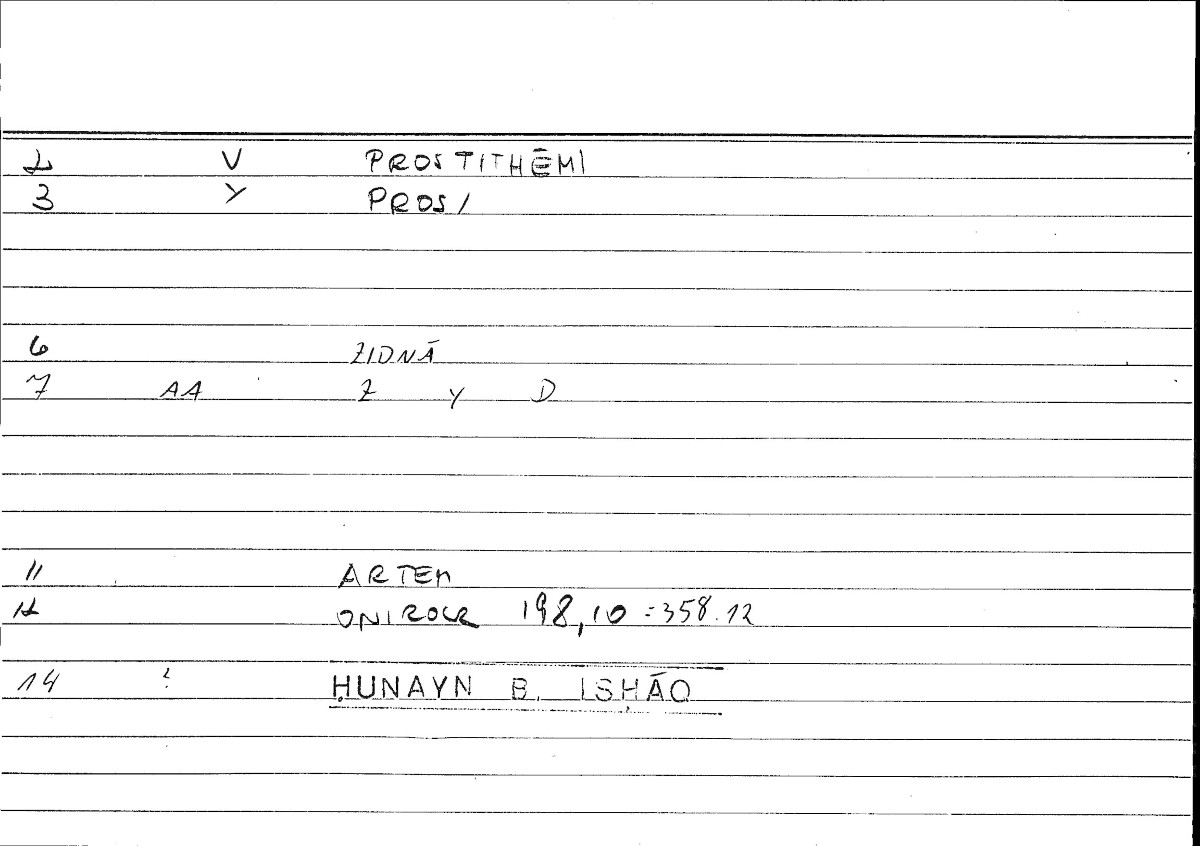 2 V PROSTITHĒMI
3 Y PROS/
6 ZIDNĀ
7 AA Z Y D
11 ARTEM
12 ONIROCR 198,10 = 358.12
14 ? ḤUNAYN B. ISḤĀQ